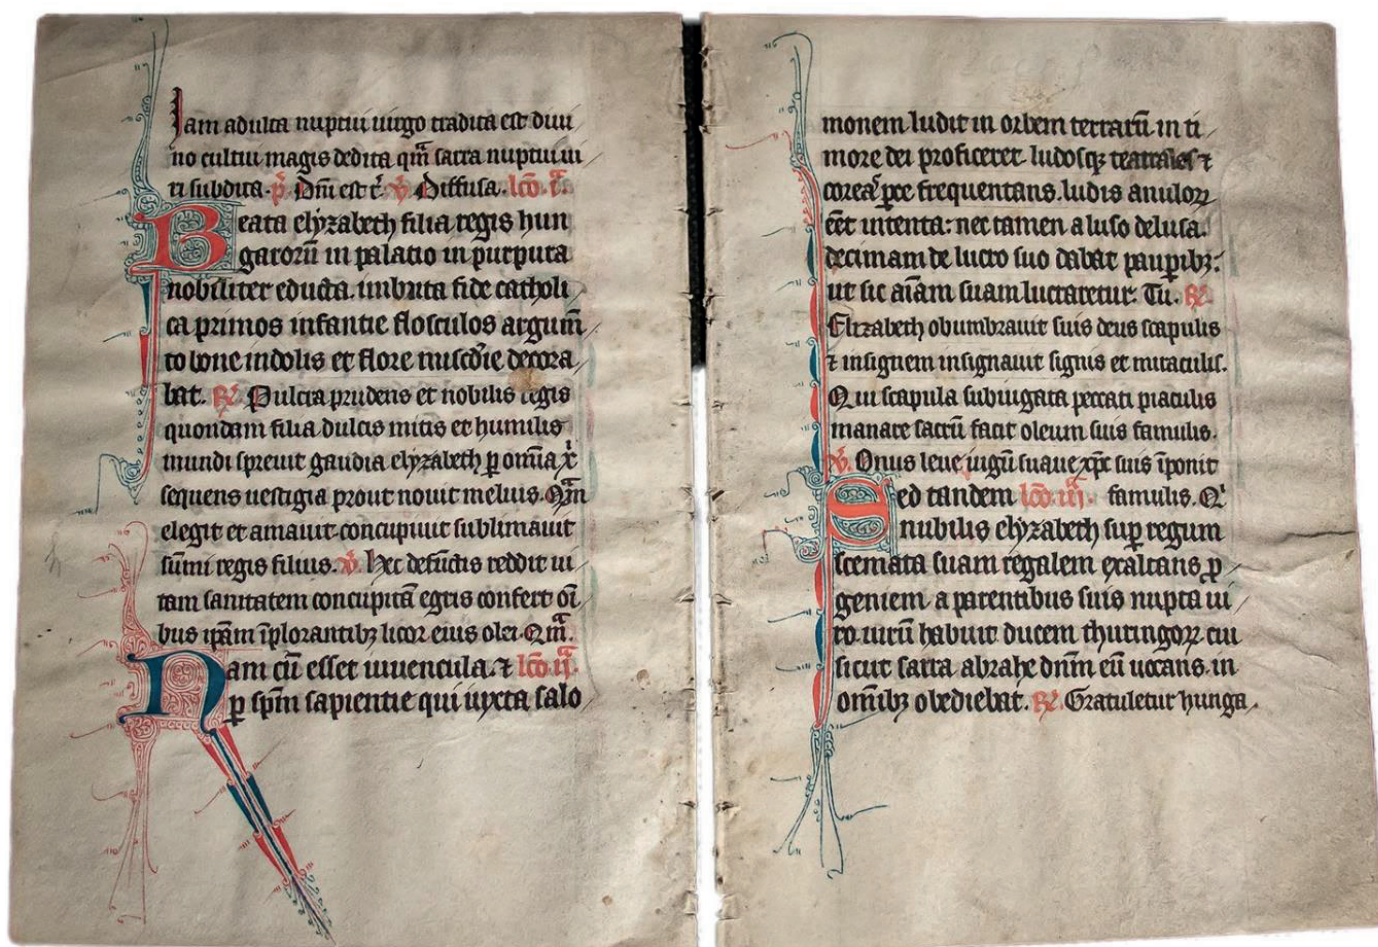 Iam adulta nuptui uirgo tradita est diui
no cultui magis dedita qm̄ sacra nuptui ui
ri subdita. p̄. Dn̄i est t̄. v̄. Diffusa. lc̄o. ī.
Beata elyzabeth filia regis hun
garorū in palacio in purpura
nobiliter educta. imbuta fide catholi
ca primos infantie flosculos argum̄
to bone indolis et flore decora
bat. R̄. Pulcra prudens et nobilis regis
quondam filia dulcis mitis et humilis
mundi spreuit gaudia elyzabeth ꝑ om̄ia xp̄i
sequens uestigia prout nouit melius. Qm̄
elegit et amauit concupiuit sublimauit
sūmi regis filius. v̄. Hec defūctis reddit ui
tam sanitatem concupitā egris confert oī
bus ip̄am īplorantibꝫ licor eius olei. Qm̄.
Nam cū esset iuuencula. ⁊ lc̄o. ij.
ꝑ sp̄m sapientie qui iuxta salo
monem ludit in orbem terrarū in ti
more dei proficeret. ludosqꝫ teatrales ⁊
coreas p̄re frequentans. ludis anulorꝝ
eēt intenta: nec tamen a luso delusa.
decimam de lucro suo dabat pauꝑibꝫ:
ut sic aīam suam lucraretur. Tu. R̄.
Elizabeth obumbrauit suis deus scapulis
⁊ insignem insignauit signis et miraculis.
Qui scapula subiugata peccati piaculis
manare sacrū facit oleum suis famulis.
v̄. Onus leue iugū suaue xp̄c suis īponit
Sed tandem lc̄o. iij. famulis. Qi
nubilis elyzabeth suꝑ regum
scemata suam regalem exaltans ꝓ
geniem a parentibus suis nupta ui
ro. uirū habuit ducem thuringorꝝ cui
sicut sarra abrahe dn̄m eū uocans. in
om̄ibꝫ obediebat. R̄. Gratuletur hunga